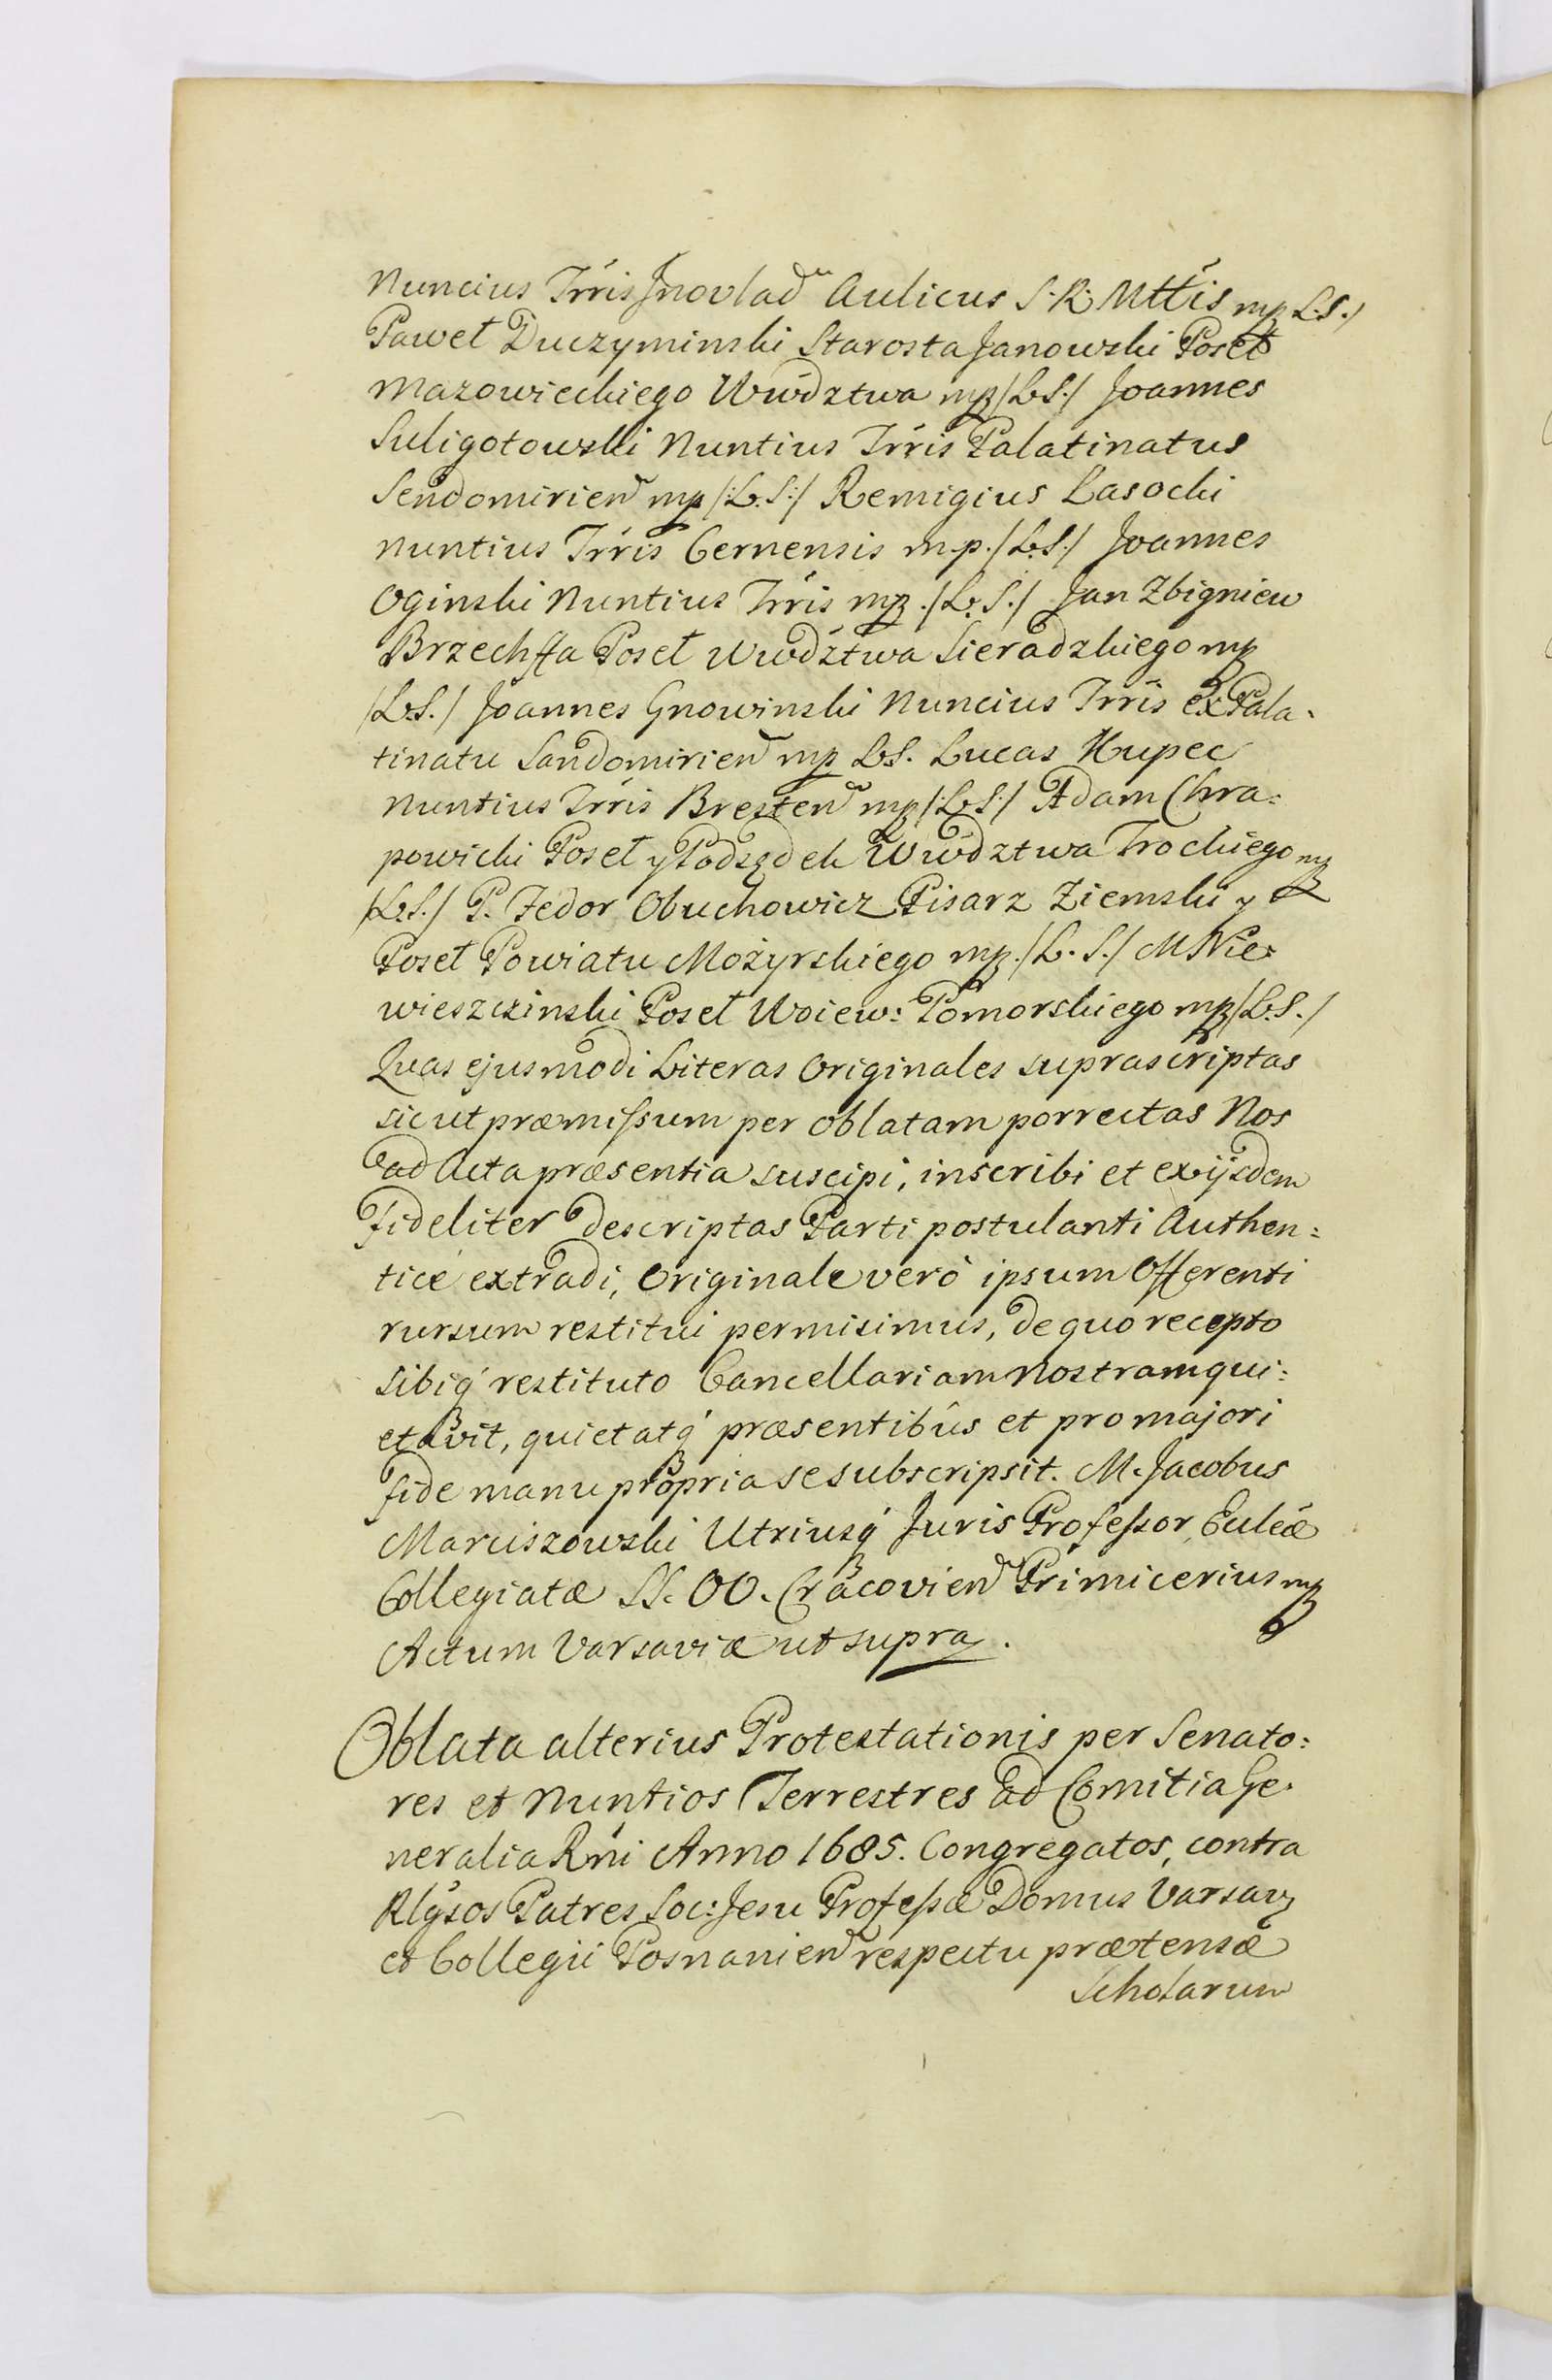 Nuncius Trris Jnovlad Aulicus S. R. Mttis mp L.S./
Paweł Duczyminski Starosta Janowski Poseł
Mazowieckiego Wwdztwa mp /L.S./ Joannes
Suligotowski Nuntius Trris Palatinatus
Sendomirien mp /:L.S:/ Remigius Lasocki
Nuntius Trris Cernensis m.p. /L.S./ Joannes
Oginski Nuntius Trris mp ./L.S./ Jan Zbigniew
Brzechffa Poseł Wwdztwa Sieradzkiego mp
/L.S./ Joannes Gnowinski Nuncius Trris ex Pala-
tinatu Sandomirien mp L.S. Lucas Kupec
Nuntius Trris Bresten mp /:L.S:/ Adam Chra=
powicki Poseł y Podsędek Wwdztwa Trockiego mp
/L.S./ P. Fedor Obuchowicz Pisarz Ziemski y
Poseł Powiatu Możyrskiego mp. /L.S./ M Nie-
wieszczinski Poseł Woiew: Pomorskiego mp /L.S./
Quas ejusmodi Literas Originales suprascriptas
sicut præmissum per oblatam porrectas Nos
ad Acta præsentia suscipi, inscribi et ex ijsdem
fideliter descriptas Parti postulanti Authen=
ticè extradi, Originale verò ipsum Offerenti
rursum restitui permisimus, de quo recepto
sibiq́ restituto Cancellariam Nostram qui=
etavit, quietatq́ præsentibûs et pro majori
fide manu propria se subscripsit. M. Jacobus
Marciszowski Utriusq́ Juris Professor, Eccleæ
Collegiatæ SS. OO. Cracovien Primicerius mp
Actum Varsaviæ ut supra.
Oblata alterius Protestationis per Senato=
res et Nuntios Terrestres ad Comitia Ge-
neralia Rni Anno 1685. Congregatos, contra
Rlgsos Patres Soc: Jesu Professæ Domus Varsav
et Collegii Posnanien respectu prætensæ
Scholarum